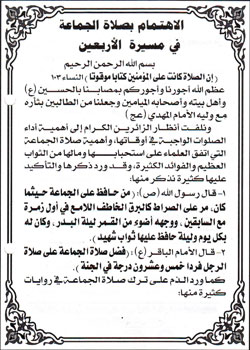 الاهتمام بصلاة الجماعة
في مسيرة الأربعين
بسم الله الرحمن الرحيم
(إن الصلاة كانت على المؤمنين كتابا موقوتا) النساء ١٠٣
عظم الله أجورنا وأجوركم بمصابنا بالحسين (ع)
وأهل بيته وأصحابه الميامين وجعلنا من الطالبين بثأره
مع وليه الامام المهدي (عج)
ونلفت أنظار الزائرين الكرام إلى أهمية أداء
الصلوات الواجبة في أوقاتها، وأهمية صلاة الجماعة
التي اتفق العلماء على استحبابها ومالها من الثواب
العظيم والفوائد الكثيرة، وقد ورد ذكرها والتأكيد
عليها كثيرة نذكر منها:
١- قال رسول الله (ص): (من حافظ على الجماعة حيثما
كان، مر على الصراط كالبرق الخاطف اللامع في أول زمرة
مع السابقين، ووجهه أضوء من القمر ليلة البدر، وكان له
بكل يوم وليلة حافظ عليها ثواب شهيد).
٢- قال الامام الباقر (ع): (فضل صلاة الجماعة على صلاة
الرجل فردا خمس وعشرون درجة في الجنة).
كما ورد الذم على ترك صلاة الجماعة في روايات
كثيرة منها: